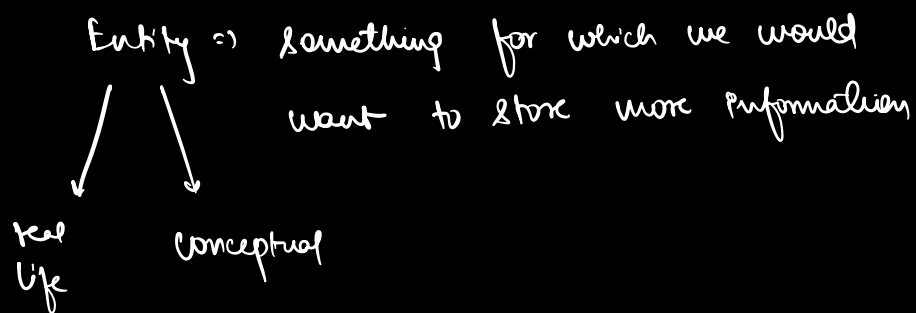 Entity => something for which we would
want to store more information
real conceptual
life